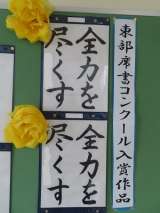 東部席書コンクール入賞作品
全力を
尽くす
全力を
尽くす